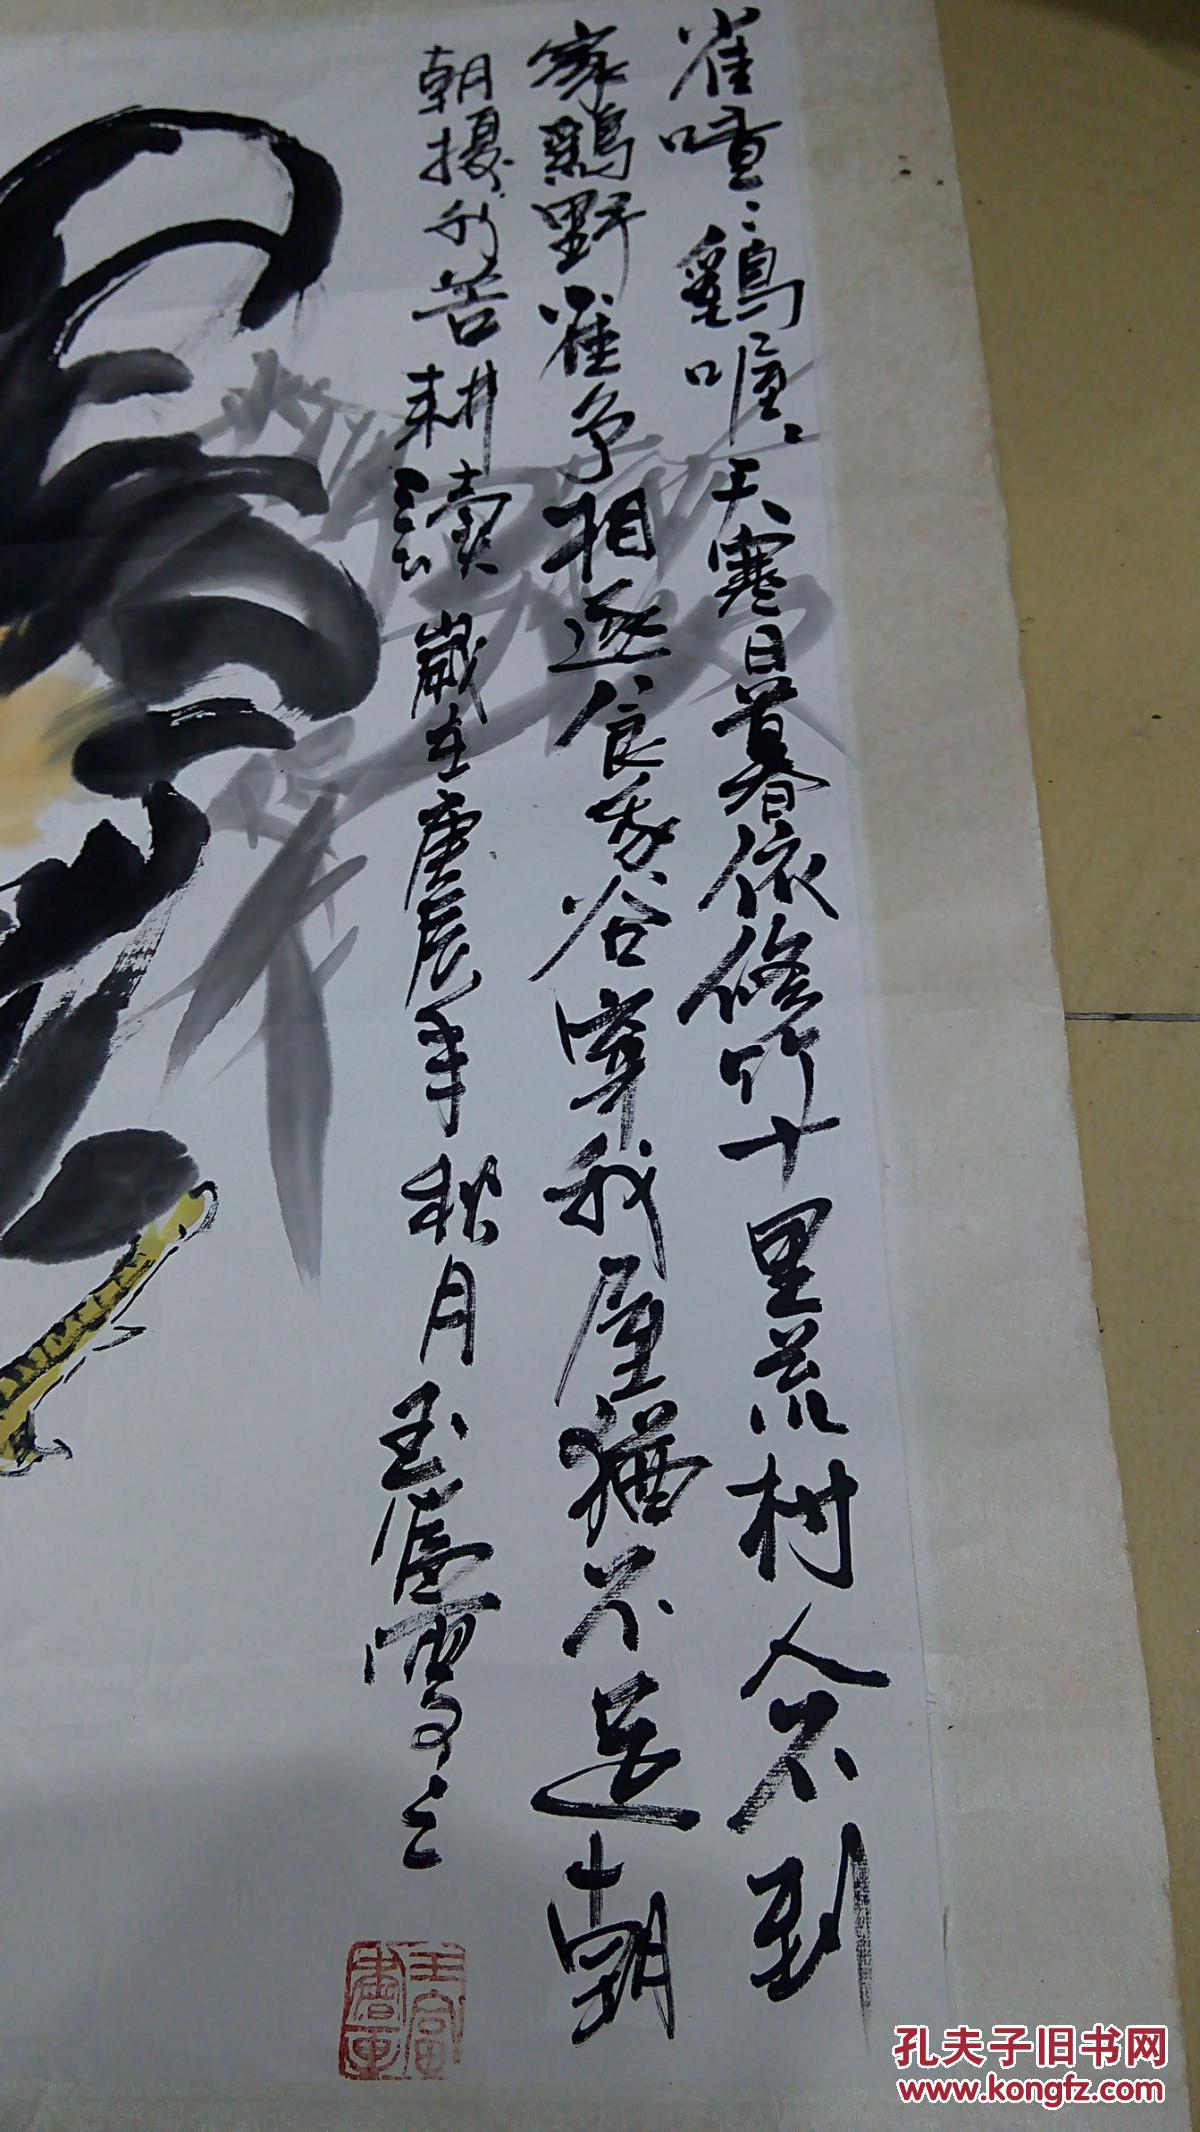 雀喳喳鷄喔喔天寒日暮依修竹十里荒村人不到
家鷄野雀争相逐食我谷穿我屋猶不足朝
朝擾我苦耕讀歲在庚辰年秋月玉
孔夫子旧书网
www.kongfz.com